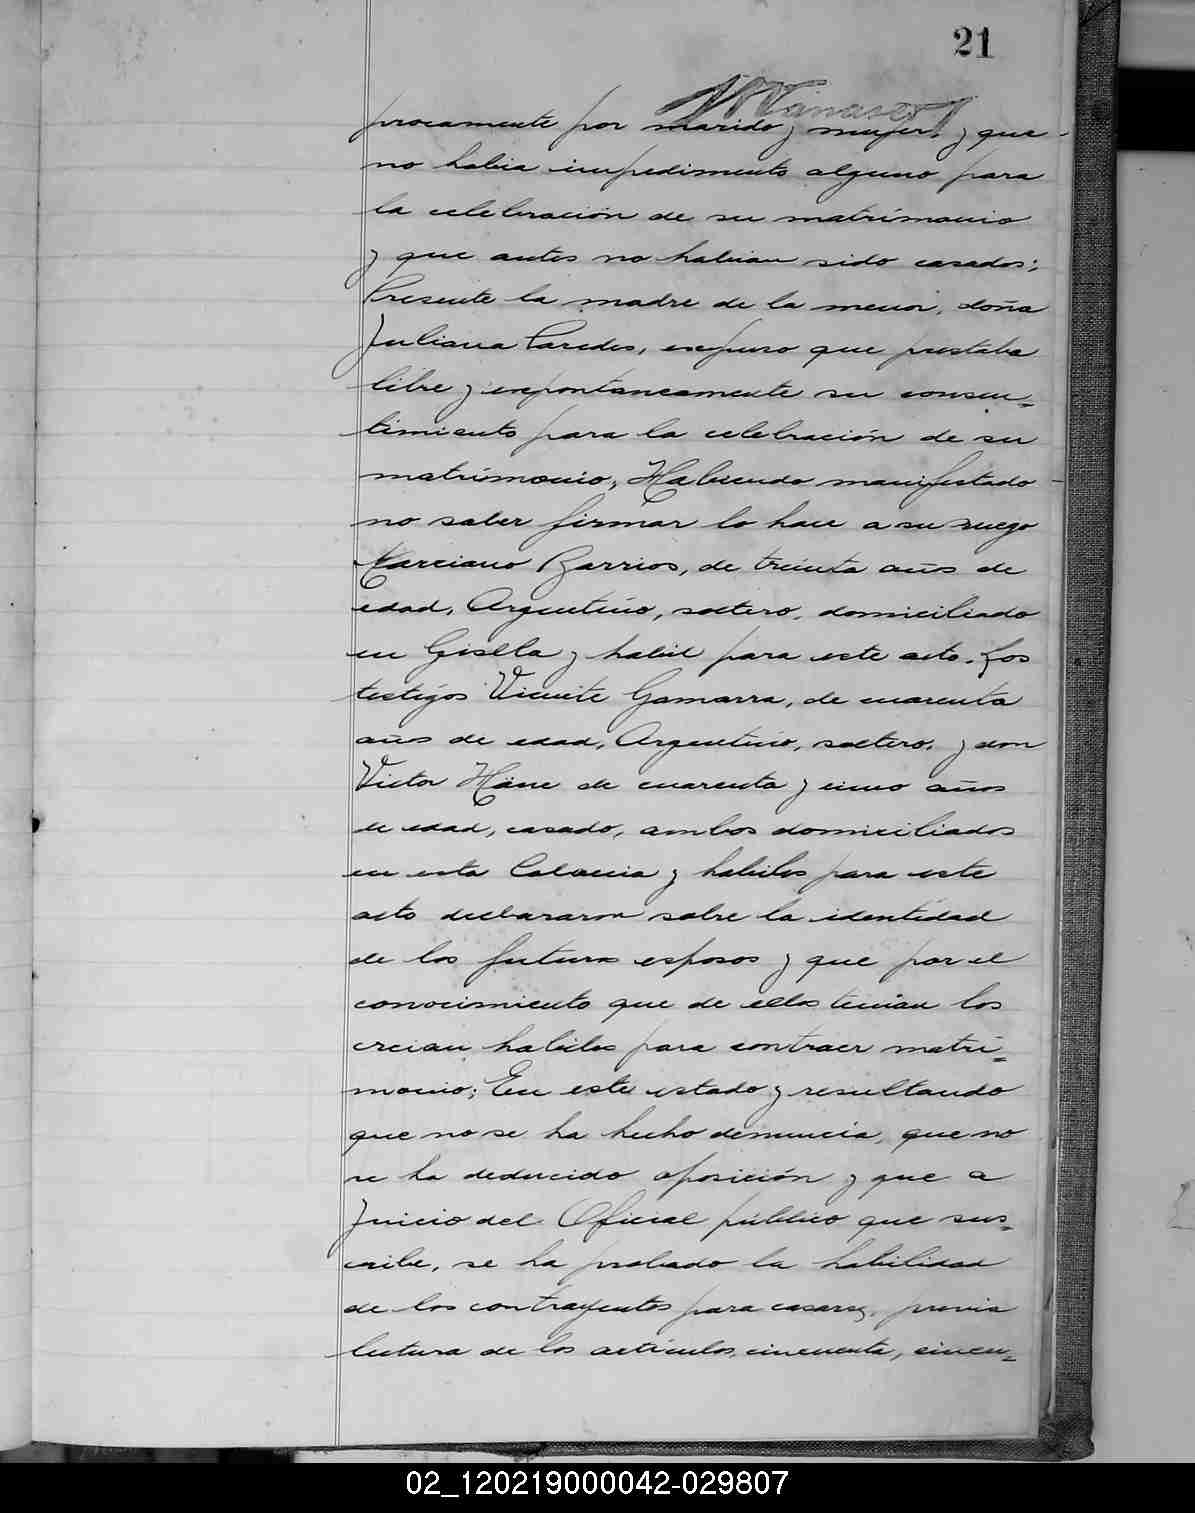 21
procamente por marido y mujer, y que
no habia impedimento alguno para
la celebración de su matrimonio
y que antes no habian sido casados;
Presente la madre de la menor, doña
Juliana Paredes, expuso que prestaba
libre y expontaneamente su consen-
timiento para la celebración de su
matrimonio, Habiendo manifestado
no saber firmar lo hace a su ruego
Marciano Barrios, de treinta años de
edad, Argentino, soltero, domiciliado
en Gisela y habil para este acto. Los
testigos Vicente Gamarra, de cuarenta
años de edad, Argentino, soltero, y don
Victor Häne de cuarenta y cinco años
de edad, casado, ambos domiciliados
en esta Colonia y habiles para este
acto declararon sobre la identidad
de los futuros esposos y que por el
conocimiento que de ellos tenian los
creian habiles para contraer matri-
monio; En este estado y resultando
que no se ha hecho denuncia, que no
se ha deducido oposición y que a
Juicio del Oficial público que sus-
cribe, se ha probado la habilidad
de los contrayentes para casarse, previa
lectura de los artículos, cincuenta, cincu-
02_120219000042-029807